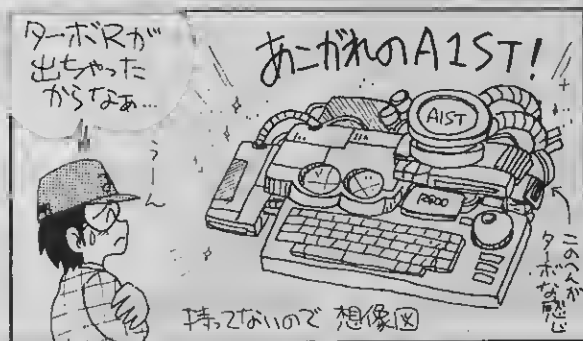 ターボRが
出ちゃった
からなぁ…
あこがれのA1ST!
A1ST
R800
うーん
このへんが
ターボな感じ
持ってないので 想像図